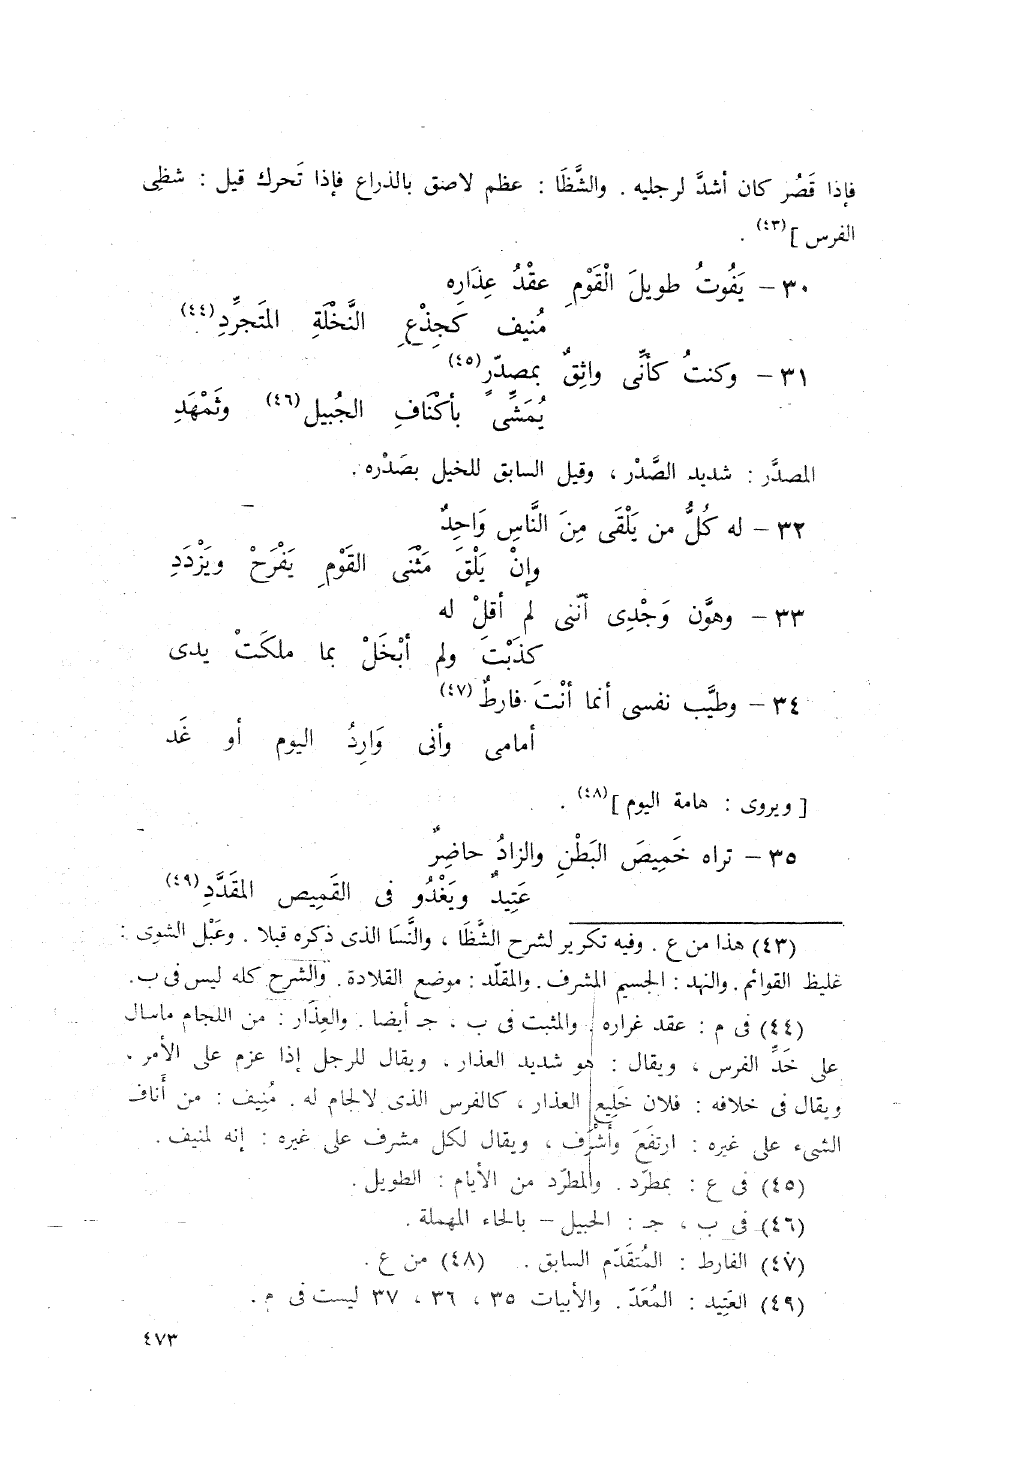 فإذا قَصُر كان أشدَّ لرجليه . والشَّظَا : عظم لاصق بالذراع فإذا تَحرك قيل : شظِى
الفرس ](٤٣) .
٣٠ – يَفُوتُ طويلَ الْقَوْمِ عقْدُ عِذَاره
مُنيف كَجِذْعِ النَّخْلَةِ المتَجرِّدِ(٤٤)
٣١ – وكنتُ كأنِّى واثِقٌ بمصدّرٍ(٤٥)
يُمَشِّى بأكْنَافِ الجُبيل(٤٦) وثَمْهَدِ
المصدَّر : شديد الصَّدْر ، وقيل السابق للخيل بصَدْره .
٣٢ – له كُلُّ من يَلْقَى مِنَ النَّاسِ وَاحِدٌ
وإنْ يَلْقَ مَثْنَى القَوْمِ يَفْرَحْ ويَزْدَدِ
٣٣ – وهوَّن وَجْدِى أنّنى لم أقلْ له
كذَبْتَ ولم أبْخَلْ بما ملكَتْ يدى
٣٤ – وطيَّب نفسى أنما أنْتَ فارطٌ(٤٧)
أمامى وأنى وَارِدُ اليوم أو غَد
[ ويروى : هامة اليوم ](٤٨) .
٣٥ – تراه خَمِيصَ البَطْنِ والزادُ حاضِرٌ
عَتِيدٌ ويَغْدُو فى القَمِيص المقَدَّدِ(٤٩)
(٤٣) هذا من ع . وفيه تكرير لشرح الشَّظَا ، والنَّسَا الذى ذكره قبلا . وعَبْل الشوى :
غليظ القوائم . والنهد : الجسيم المشرف . والمقلّد : موضع القلادة . والشرح كله ليس فى ب .
(٤٤) فى م : عقد غراره . والمثبت فى ب ، جـ أيضا . والعِذَار : من اللجام ماسال
على خَدِّ الفرس ، ويقال : هو شديد العذار . ويقال للرجل إذا عزم على الأمر .
ويقال فى خلافه : فلان خَلِيع العذار ، كالفرس الذى لالجام له . مُنِيف : من أَناف
الشىء على غيره : ارتفَعَ وأَشْرَف ، ويقال لكل مشرف على غيره : إنه لمنيف .
(٤٥) فى ع : بمطرّد . والمطرّد من الأيام : الطويل .
(٤٦) فى ب ، جـ : الحبيل – بالحاء المهملة .
(٤٧) الفارط : المُتقَدّم السابق . (٤٨) من ع .
(٤٩) العَتِيد : المُعَدّ . والأبيات ٣٥ ، ٣٦ ، ٣٧ ليست فى م .
٤٧٣